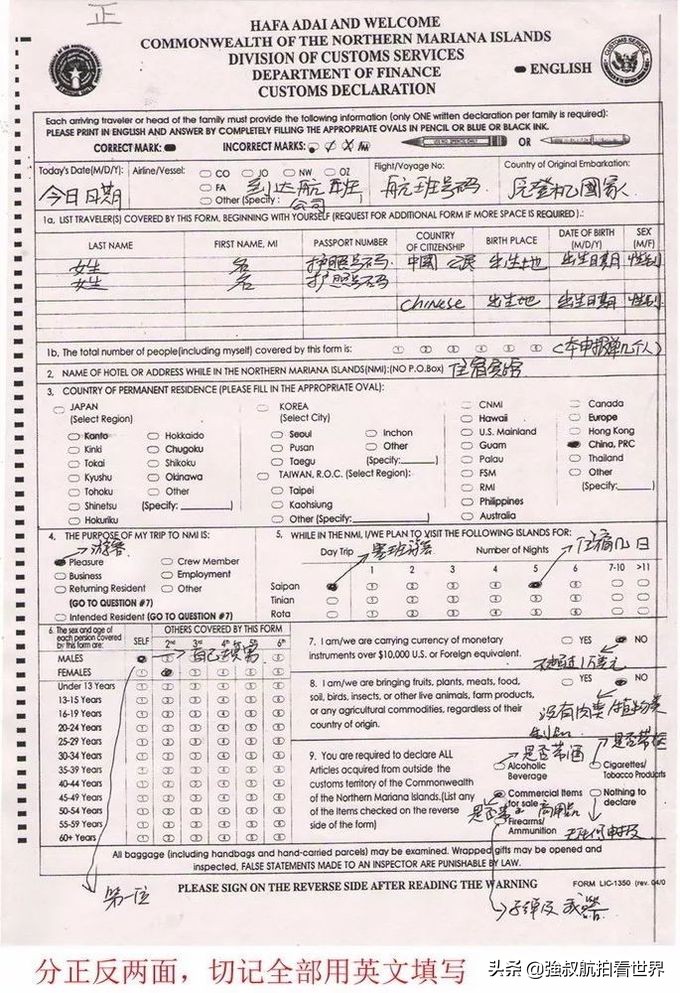 正
HAFA ADAI AND WELCOME
COMMONWEALTH OF THE NORTHERN MARIANA ISLANDS
DIVISION OF CUSTOMS SERVICES
DEPARTMENT OF FINANCE
CUSTOMS DECLARATION
ENGLISH
Each arriving traveler or head of the family must provide the following information (only ONE written declaration per family is required):
PLEASE PRINT IN ENGLISH AND ANSWER BY COMPLETELY FILLING THE APPROPRIATE OVALS IN PENCIL OR BLUE OR BLACK INK.
CORRECT MARK: INCORRECT MARKS: OR
Today's Date(M/D/Y): Airline/Vessel: CO JO NW OZ Flight/Voyage No: Country of Original Embarkation:
FA
Other (Specify:
今日日期 到达航班 航班号码 原登机國家
公司
1a. LIST TRAVELER(S) COVERED BY THIS FORM, BEGINNING WITH YOURSELF (REQUEST FOR ADDITIONAL FORM IF MORE SPACE IS REQUIRED).:
LAST NAME FIRST NAME, MI PASSPORT NUMBER COUNTRY OF CITIZENSHIP BIRTH PLACE DATE OF BIRTH (M/D/Y) SEX (M/F)
姓 名 护照号码 中國公民 出生地 出生日期 性别
姓 名 护照号码
Chinese 出生地 出生日期 性别
1b. The total number of people(including myself) covered by this form is: 1 2 3 4 5 6 (本申报单几个人)
2. NAME OF HOTEL OR ADDRESS WHILE IN THE NORTHERN MARIANA ISLANDS(NMI):(NO P.O.Box) 住宿宾馆
3. COUNTRY OF PERMANENT RESIDENCE (PLEASE FILL IN THE APPROPRIATE OVAL):
JAPAN
(Select Region)
Kanto Hokkaido
Kinki Chugoku
Tokai Shikoku
Kyushu Okinawa
Tohoku Other
Shinetsu (Specify:
Hokuriku
KOREA
(Select City)
Seoul Inchon
Pusan Other
Taegu (Specify:
TAIWAN, R.O.C. (Select Region):
Taipei
Kaohsiung
Other (Specify:
CNMI
Hawaii
U.S. Mainland
Guam
Palau
FSM
RMI
Philippines
Australia
Canada
Europe
Hong Kong
China, PRC
Thailand
Other
(Specify:
4. THE PURPOSE OF MY TRIP TO NMI IS:
Pleasure Crew Member
Business Employment
Returning Resident Other
(GO TO QUESTION #7)
Intended Resident (GO TO QUESTION #7)
5. WHILE IN THE NMI, I/WE PLAN TO VISIT THE FOLLOWING ISLANDS FOR:
Day Trip Number of Nights 住宿几日
1 2 3 4 5 6 7-10 >11
Saipan
Tinian
Rota
6. The sex and age of each person covered by this form are:
OTHERS COVERED BY THIS FORM
SELF 2nd 3rd 4th 5th 6th
MALES
FEMALES
Under 13 Years
13-15 Years
16-19 Years
20-24 Years
25-29 Years
30-34 Years
35-39 Years
40-44 Years
45-49 Years
50-54 Years
55-59 Years
60+ Years
7. I am/we are carrying currency of monetary instruments over $10,000 U.S. or Foreign equivalent. YES NO
不超过1万美元
8. I am/we are bringing fruits, plants, meats, food, soil, birds, insects, or other live animals, farm products, or any agricultural commodities, regardless of their country of origin. YES NO
没有肉类/植物类
9. You are required to declare ALL Articles acquired from outside the customs territory of the Commonwealth of the Northern Mariana Islands.(List any of the Items checked on the reverse side of the form)
是否带酒 是否带烟
Alcoholic Beverage Cigarettes/ Tobacco Products
Commercial Items for sale Nothing to declare
是否带 商用品
Firearms/ Ammunition
无任何申报
All baggage (including handbags and hand-carried parcels) may be examined. Wrapped gifts may be opened and
inspected, FALSE STATEMENTS MADE TO AN INSPECTOR ARE PUNISHABLE BY LAW.
PLEASE SIGN ON THE REVERSE SIDE AFTER READING THE WARNING
FORM LIC-1350 (rev.
第一位
子弹及武器
分正反两面，切记全部用英文填写
头条 @强叔航拍看世界